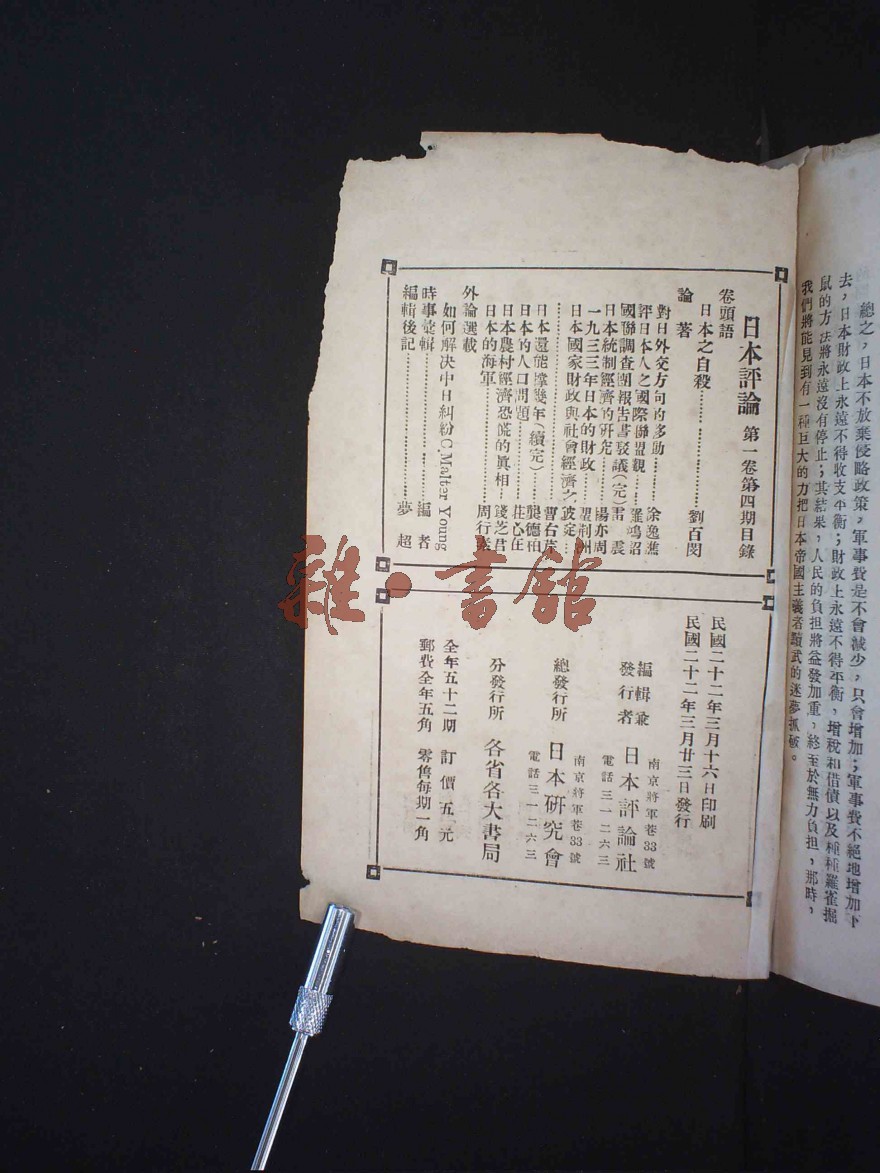 總之，日本不放棄侵略政策，軍事費是不會減少，只會增加；軍事費不絕地增加下
去，日本財政上永遠不得收支平衡；財政上永遠不得平衡，增稅和借債以及種種羅雀掘
鼠的方法將永遠沒有停止；其結果，人民的負担將益發加重，終至於無力負担，那時，
我們將能見到有一種巨大的力把日本帝國主義者黷武的迷夢抓破。
日本評論 第一卷第四期目錄
卷頭語
日本之自殺……劉百閔
論著
對日外交方向的移動……徐逸樵
評日本人之國際聯盟觀……羅鴻詔
國聯調查團報告書駁議(完)雷震
日本統制經濟的研究……楊亦周
一九三三年日本的財政……瞿荊洲
日本國家財政與社會經濟之
……彼定……曹右芹
日本還能撐幾年(續完)……龔德柏
日本的人口問題……莊心在
日本農村經濟恐慌的眞相…錢芝君
日本的海軍……周行
外論選載
如何解决中日糾紛C.Malter Young
時事彙輯……編者
編輯後記……夢超
民國二十二年三月十六日印刷
民國二十二年三月廿三日發行
編輯兼
發行者 日本評論社
南京將軍巷33號
電話三一二六三
總發行所 日本研究會
南京將軍巷33號
電話三一二六三
分發行所 各省各大書局
全年五十二期 訂價五元
郵費全年五角 零售每期一角
雜·書館